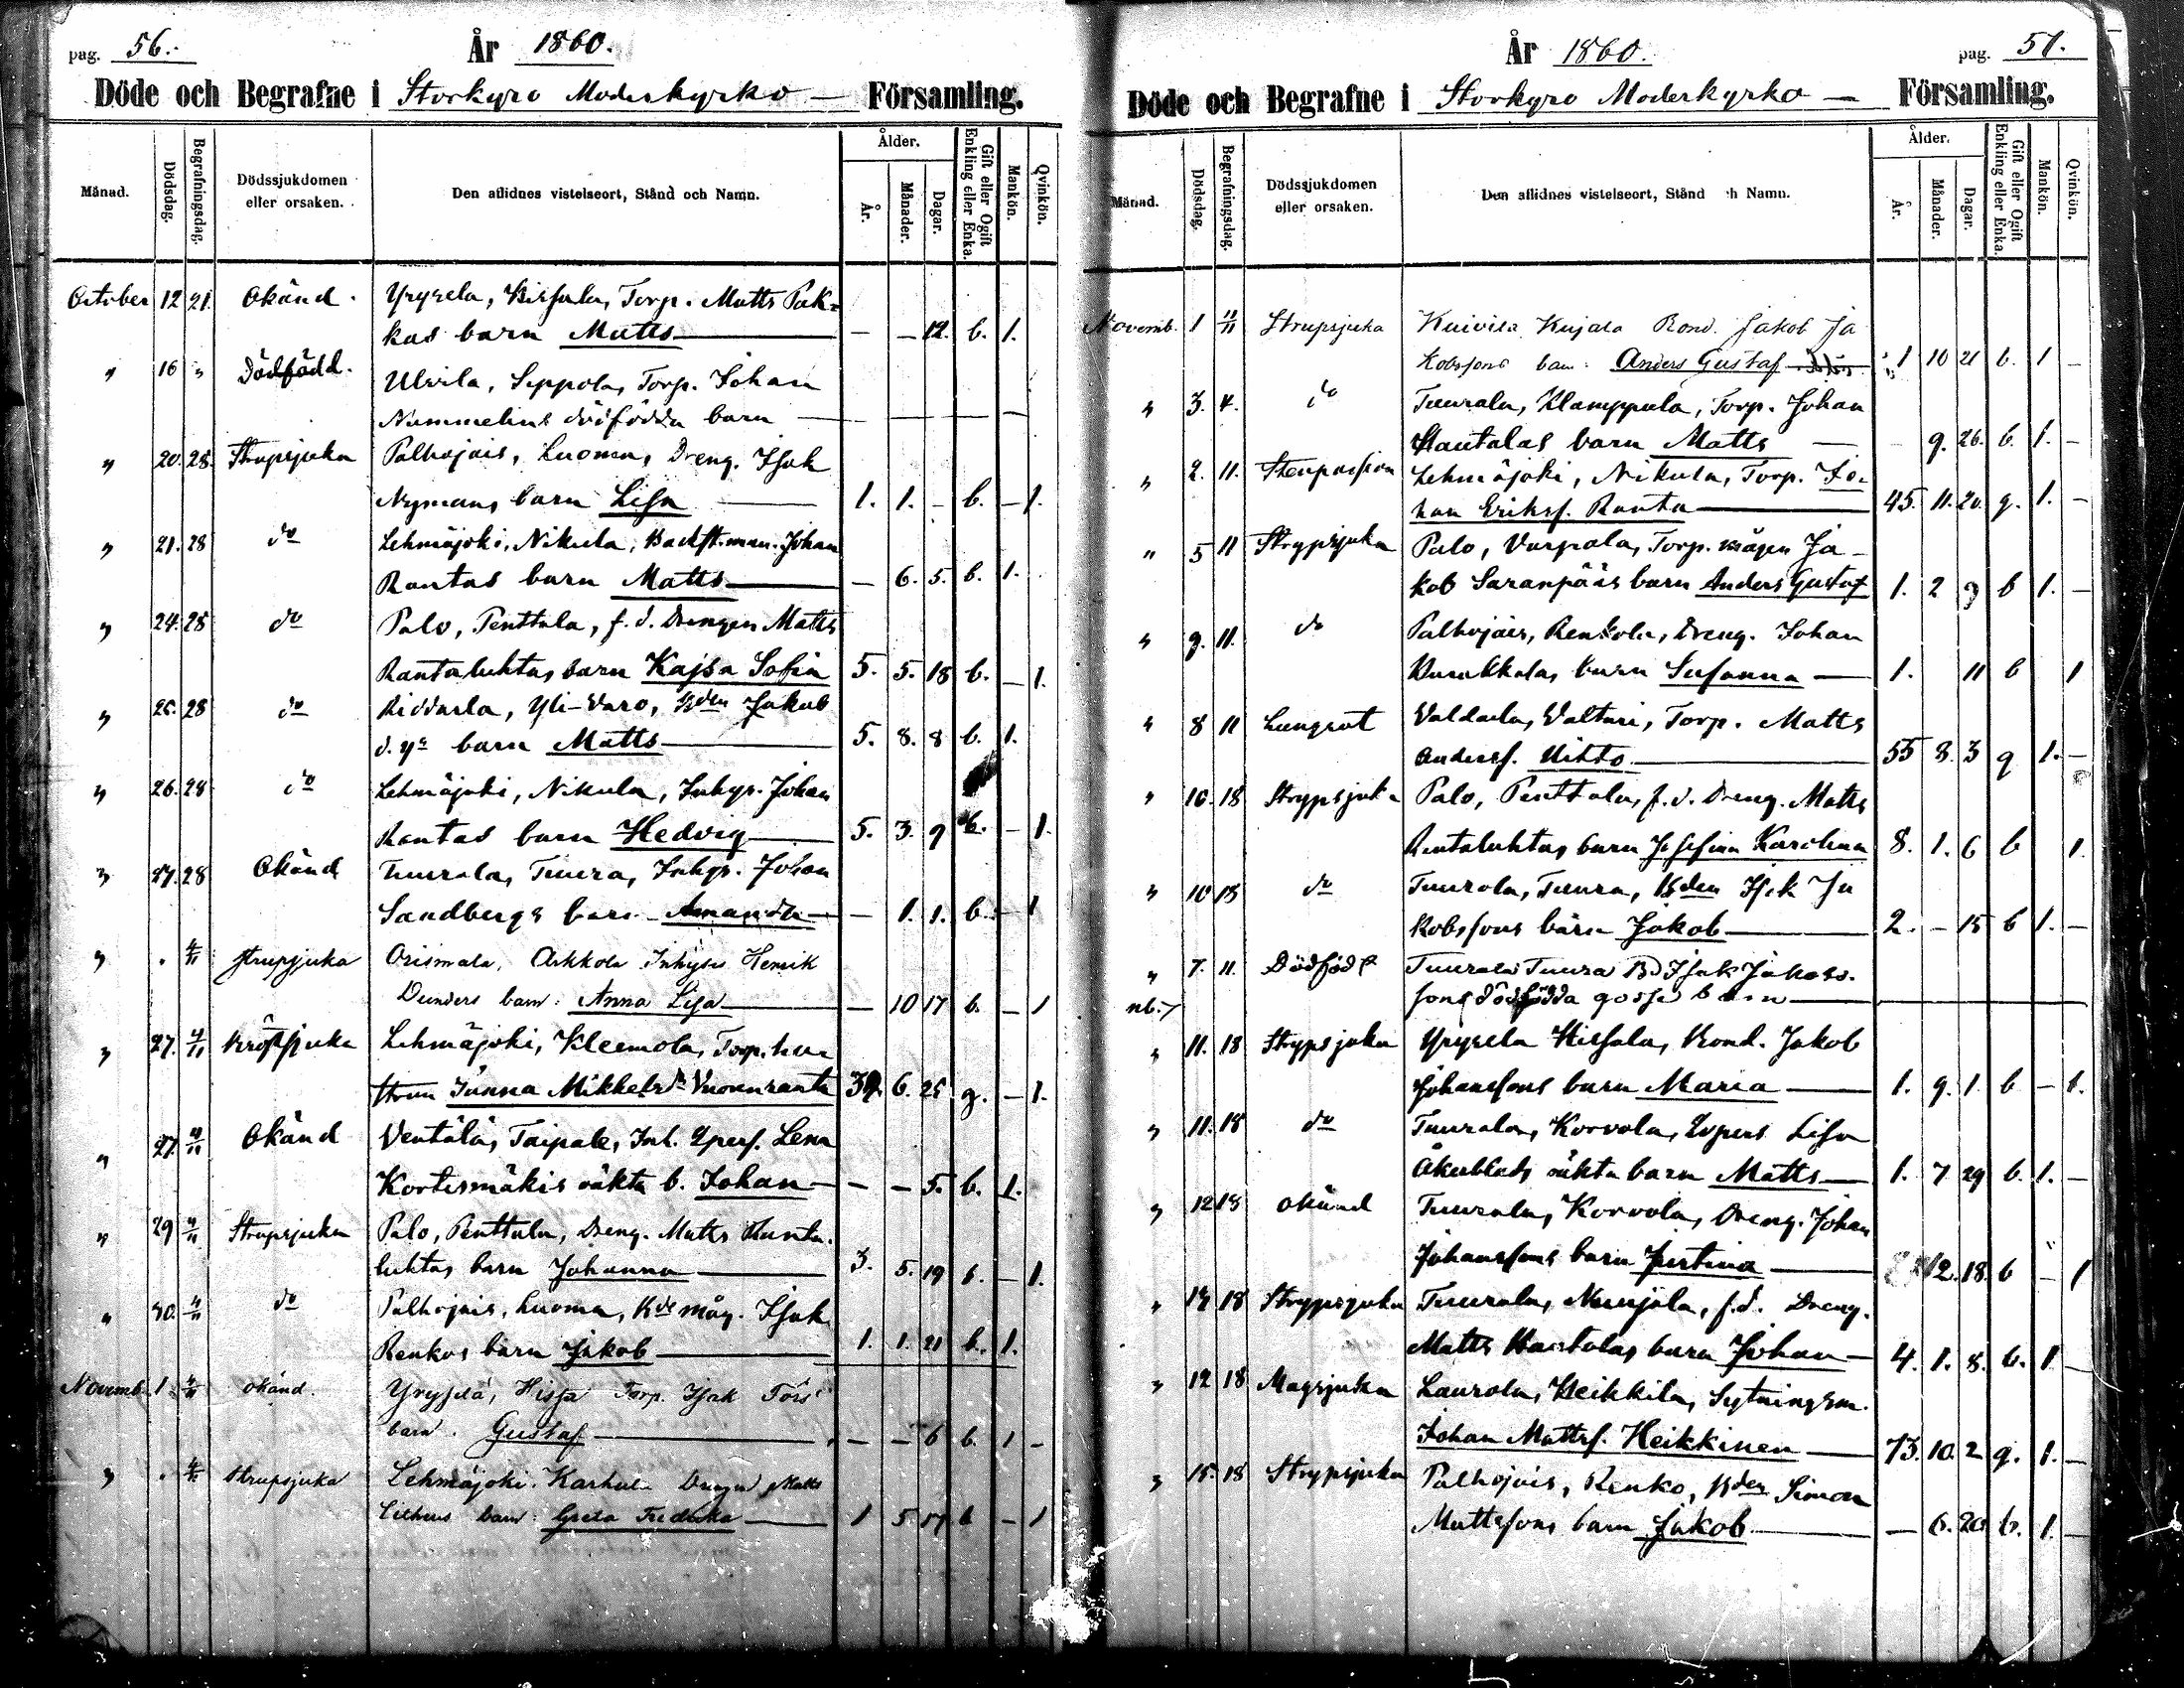 pag. 56. År 1860.
Döde och Begrafne i Storkyro Moderkyrko — Församling.
Månad. Dödsdag. Begrafningsdag. Dödssjukdomen eller orsaken. Den aflidnes vistelseort, Stånd och Namn. Ålder. År. Månader. Dagar. Gift eller Ogift Enkling eller Enka. Mankön. Qvinkön.
October 12 21. Okänd. Yryselä, Hissala, Torp. Matts Pak-
kas barn Matts — — 12. b. 1.
" 16 " Dödfödd. Ulvila, Seppola, Torp. Johan
Nummelins dödfödda barn — — —
" 20. 28. Strupsjuka Palhojais, Luoma, Dreng. Isak
Nymans barn Lisa 1. 1. - b. - 1.
" 21. 28 do Lehmäjoki, Nikula, Backst.man. Johan
Rantas barn Matts — 6. 5. b. 1.
" 24. 28 do Palo, Penttala, f.d. Drengen Matts
Rantaluhtas barn Kajsa Sofia 5. 5. 18 b. - 1.
" 25. 28 do Riddarla, Yli-Varo, Bden Jakob
d.ys barn Matts 5. 8. 8 b. 1.
" 26. 28 do Lehmäjoki, Nikula, Inhys. Johan
Rantas barn Hedvig 5. 3. 9 b. - 1.
" 27. 28 Okänd Tuurala, Tuura, Inhys. Johan
Sandbergs barn Amanda — 1. 1. b. - 1
" " 4/11 strupsjuka Orismala, Arkkola Inhyses Henrik
Dunders barn: Anna Lisa — 10 17 b. - 1
" 27. 4/11 Bröstsjuka Lehmäjoki, Kleemola, Torp.hu-
strun Sanna Mikkelsdr Vuorenranta 39. 6. 25 g. - 1.
" 27. 4/11 Okänd Ventälä, Taipale, Inh. Qpers. Lena
Kortesmäkis oäkta b. Johan — — 5. b. 1.
" 29 4/11 Strupsjuka Palo, Penttala, Dreng. Matts Ranta-
luhtas barn Johanna 3. 5. 19 b. - 1.
" 30. 4/11 do Palhojais, Luoma, Bds måg. Isak
Renkos barn Jakob 1. 1. 21 b. 1.
Novemb. 1 4/11 okänd. Yryselä, Hissa Torp. Isak Fors
barn. Gustaf — — 6 b. 1 -
" " 4/11 strupsjuka Lehmäjoki. Karhula Drengen Matts
barn: Greta Fredrika 1 5 17 b - 1
År 1860. pag. 57.
Döde och Begrafne i Storkyro Moderkyrko — Församling.
Månad. Dödsdag. Begrafningsdag. Dödssjukdomen eller orsaken. Den aflidnes vistelseort, Stånd och Namn. Ålder. År. Månader. Dagar. Gift eller Ogift Enkling eller Enka. Mankön. Qvinkön.
Novemb. 1 4/11 Strupsjuka Kuivila Kujala Bond. Jakob Ja
kobssons barn: Anders Gustaf 1 10 21 b. 1 -
" 3. 4. do Tuurala, Klamppula, Torp. Johan
Hautalas barn Matts — 9. 26. b. 1. -
" 2. 11. Stenpassion Lehmäjoki, Nikula, Torp. Jo-
han Erikss. Ranta 45. 11. 20. g. 1. -
" 5 11 Strypsjuka Palo, Varpala, Torp. mågen Ja-
kob Saranpääs barn Anders Gustaf 1. 2 9 b 1. -
" 9. 11. do Palhojais, Renkola, Dreng. Johan
barn Susanna 1. 11 b 1
" 8 11 Lungsot Valdarla, Valtari, Torp. Matts
Anderss. Uitto 55 8. 3 g 1. -
" 10. 18 Strypsjuka Palo, Penttala, f.d. Dreng. Matts
Rantaluhtas barn Josefina Karolina 8. 1. 6 b 1.
" 10 18 do Tuurala, Tuura, Bden Isak Ja
kobssons barn Jakob 2. - 15 b 1. -
" 7. 11. Dödfödd Tuurala Tuura Bd Isak Jakobs-
nb. sons dödfödda gosse barn —
" 11. 18 Strypsjuka Yryselä Hissala, Bond. Jakob
Johanssons barn Maria 1. 9. 1. b - 1.
" 11. 18 do Tuurala, Korvola, Qvpers Lisa
Åkerblads oäkta barn Matts 1. 7 29 b. 1. -
" 12 18 okänd Tuurala, Korvola, Dreng. Johan
Johanssons barn Justina 2. 18. b - 1
" 14 18 Strypsjuka Tuurala, Nuujala, f.d. Dreng.
Matts Hautalas barn Johan 4. 1. 8. b. 1. -
" 12 18 Magsjuka Laurola, Heikkilä, Sytningsm.
Johan Mattss. Heikkinen 73. 10. 2 g. 1. -
" 15. 18 Strypsjuka Palhojais, Renko, Bden Simon
Mattssons barn Jakob — 6. 20. b. 1. -